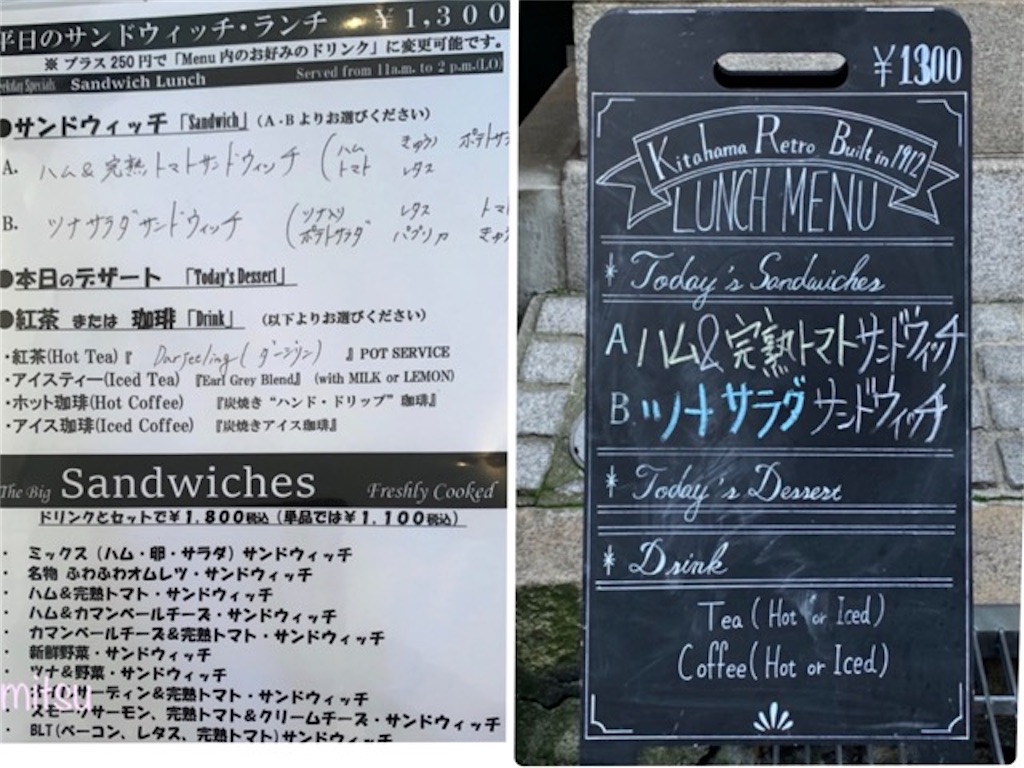 平日のサンドウィッチ・ランチ ・ ¥1,300
※ プラス250円で「Menu内のお好みのドリンク」に変更可能です。
Specials Sandwich Lunch Served from 11a.m. to 2 p.m.(LO)
●サンドウィッチ「Sandwich」(A・Bよりお選びください)
A. ハム&完熟トマトサンドウィッチ (ハム きゅうり ポテトサ
トマト レタス
B. ツナサラダサンドウィッチ (ツナ入り レタス トマ
ポテトサラダ パプリカ きゅ
●本日のデザート 「Today's Dessert」
●紅茶 または 珈琲「Drink」 (以下よりお選びください)
・紅茶(Hot Tea)『 Darjeeling(ダージリン) 』POT SERVICE
・アイスティー(Iced Tea) 『Earl Grey Blend』 (with MILK or LEMON)
・ホット珈琲(Hot Coffee) 『炭焼き“ハンド・ドリップ”珈琲』
・アイス珈琲(Iced Coffee) 『炭焼きアイス珈琲』
The Big Sandwiches Freshly Cooked
ドリンクとセットで¥1,800税込(単品では¥1,100税込)
・ ミックス(ハム・卵・サラダ)サンドウィッチ
・ 名物 ふわふわオムレツ・サンドウィッチ
・ ハム&完熟トマト・サンドウィッチ
・ ハム&カマンベールチーズ・サンドウィッチ
・ カマンベールチーズ&完熟トマト・サンドウィッチ
・ 新鮮野菜・サンドウィッチ
・ ツナ&野菜・サンドウィッチ
サーディン&完熟トマト・サンドウィッチ
スモークサーモン、完熟トマト&クリームチーズ・サンドウィッチ
・ BLT(ベーコン、レタス、完熟トマト)サンドウィッチ
mitsu
¥1300
Kitahama Retro Built in 1912
LUNCH MENU
Today's Sandwiches
A ハム&完熟トマトサンドウィッチ
B. ツナサラダサンドウィッチ
Today's Dessert
Drink
Tea (Hot or Iced)
Coffee (Hot or Iced)